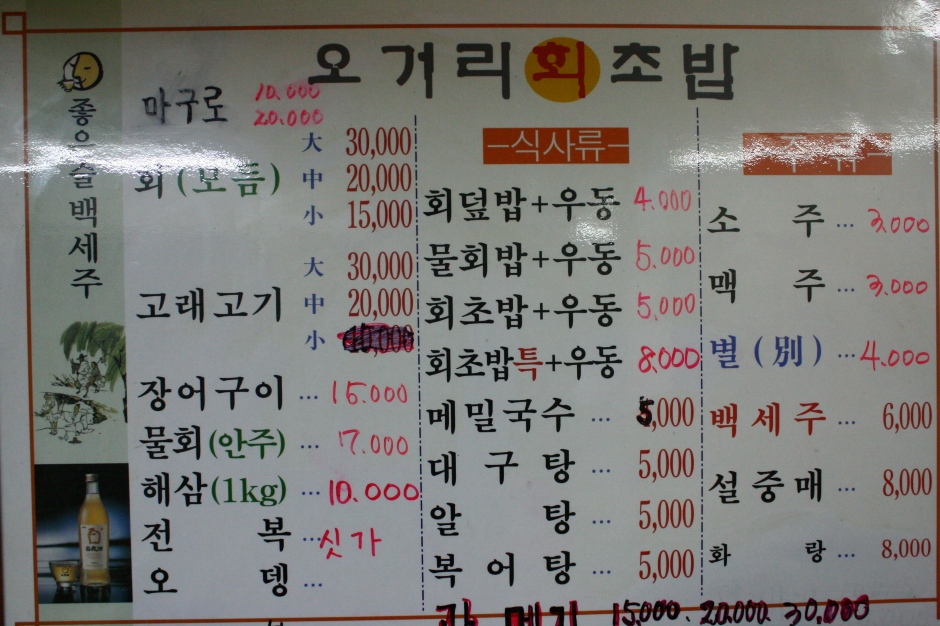 오거리회초밥
좋은술백세주
마구로 10.000
20.000
회(모듬) 大 30,000
中 20,000
小 15,000
고래고기 大 30,000
中 20,000
小 10,000
장어구이 ... 15.000
물회(안주) ... 7.000
해삼(1kg) ... 10.000
전복 ... 싯가
오뎅 ...
-식사류-
회덮밥+우동 4.000
물회밥+우동 5.000
회초밥+우동 5,000
회초밥특+우동 8,000
메밀국수 ... 5,000
대구탕 ... 5,000
알탕 ... 5,000
복어탕 ... 5,000
과메기 15,000. 20,000. 30,000
-주류-
소주 ... 3,000
맥주 ... 3.000
별(別) ... 4.000
백세주 ... 6,000
설중매 ... 8,000
화랑 ... 8,000